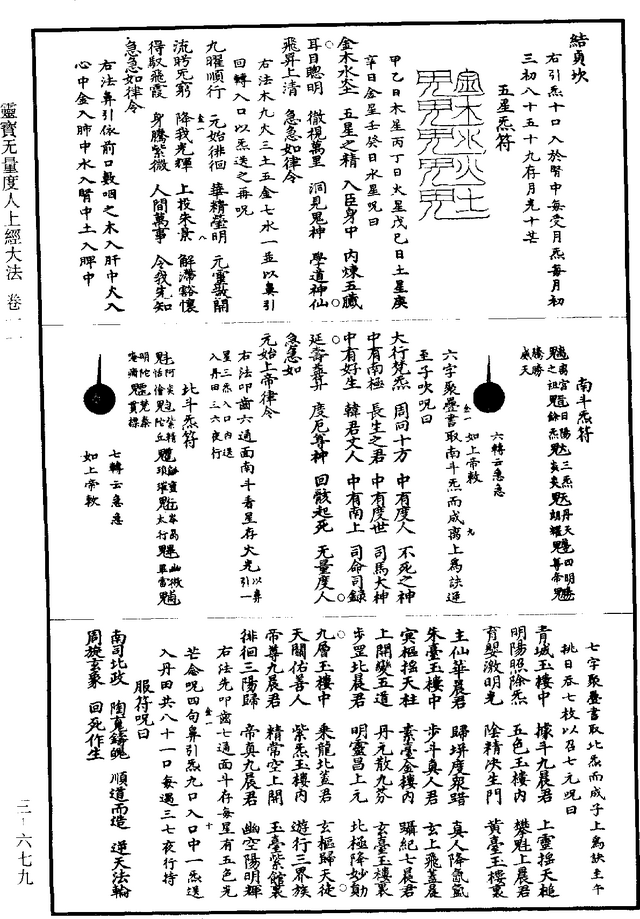 結貞坎
右引炁十口入於腎中每受月炁每月初
三初八十五十九存月光十芒
五星炁符
金木水火土
甲乙日木星丙丁日火星戊己日土星庚
辛日金星壬癸日水星呪曰
金木水土　五星之精　入臣身中　内煉五臟
耳目聰明　徹視萬里　洞見鬼神　學道神仙
飛昇上清　急急如律令
右法木九火三土五金七水一並以鼻引
回轉入口以炁送之再呪
九曜順行　元始徘徊　華精瑩明　元靈散開
流眄无窮　降我光輝　上投朱景　解滯豁懷
得馭飛霞　身騰紫微　人間萬事　令我先知
急急如律令
右法鼻引依前口數咽之木入肝中火入
心中金入肺中水入腎中土入脾中
南斗炁符
六轉云急急
如上帝敕
六字聚疊書取南斗炁而成离上為訣運
至子吹呪曰
大行梵炁　周回十方　中有度人　不死之神
中有南極　長生之君　中有度世　司馬大神
中有好生　韓君丈人　中有南上　司命司錄
延壽益算　度厄尊神　回骸起死　无量度人
急急如
元始上帝律令
右法叩齒六通面南斗看星存火光以鼻引一
星三炁入口内送
入丹田三六夜行
北斗炁符
七轉云急急
如上帝敕
七字聚疊書取北炁而成子上為訣主午
挑日吞七枚以召七元呪曰
青城玉樓中　據斗九晨君　上靈搖天槌
明陽照除炁　五色玉樓内　攀魁上晨君
育嬰激明光　陰精決生門　黄臺玉樓裏
主仙華晨君　歸拼度衆䟽　真人降氤氳
朱臺玉樓中　步斗真人君　玄上飛蓋晨
冥樞搖天柱　素臺金樓内　躡紀七晨君
上開變五道　丹元散九芬　玄臺玉樓裏
步罡北晨君　明靈昌上元　北極降妙勛
九層玉樓中　乘龍北蓋君　玄樞歸天徒
天關佑善人　紫炁玉樓内　遊行三界族
帝尊九晨君　精常空上開　玉臺紫館裏
徘徊三陽歸　帝真九晨君　幽空陽明輝
右法先叩齒七通面斗存每星有五色光
芒念呪四句鼻引炁九口入口中一炁送
入丹田共八十一口每遇三七夜行持
服符呪曰
南司北政　陶真鑄魄　順道而造　逆天法輪
周旋玄象　回死作生
靈寶无量度人上經大法　卷一一
三-六七九